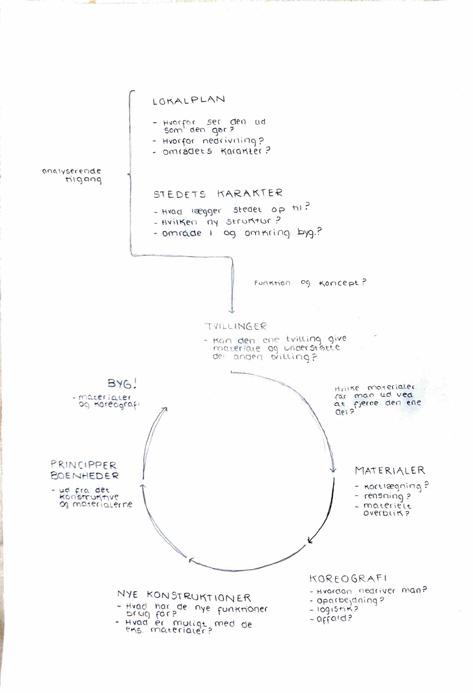 LOKALPLAN
- Hvorfor ser den ud
som den gør?
- Hvorfor nedrivning?
- områdets karakter?
analyserende
tilgang
STEDETS KARAKTER
- Hvad lægger stedet op til?
- Hvilken ny struktur?
- område i og omkring byg.?
Funktion og koncept?
TVILLINGER
- Kan den ene tvilling give
materiale og understøtte
den anden tvilling?
Hvilke materialer
får man ud ved
at fjerne den ene
del?
BYG!
- materialer
og koreografi
PRINCIPPER
BOENHEDER
- ud fra det
konstruktive
og materialerne
MATERIALER
- kortlægning?
- rensning?
- materielt
overblik?
KOREOGRAFI
- Hvordan nedriver man?
- oparbejdning?
- logistik?
- affald?
NYE KONSTRUKTIONER
- Hvad har de nye funktioner
brug for?
- Hvad er muligt med de
eks. materialer?